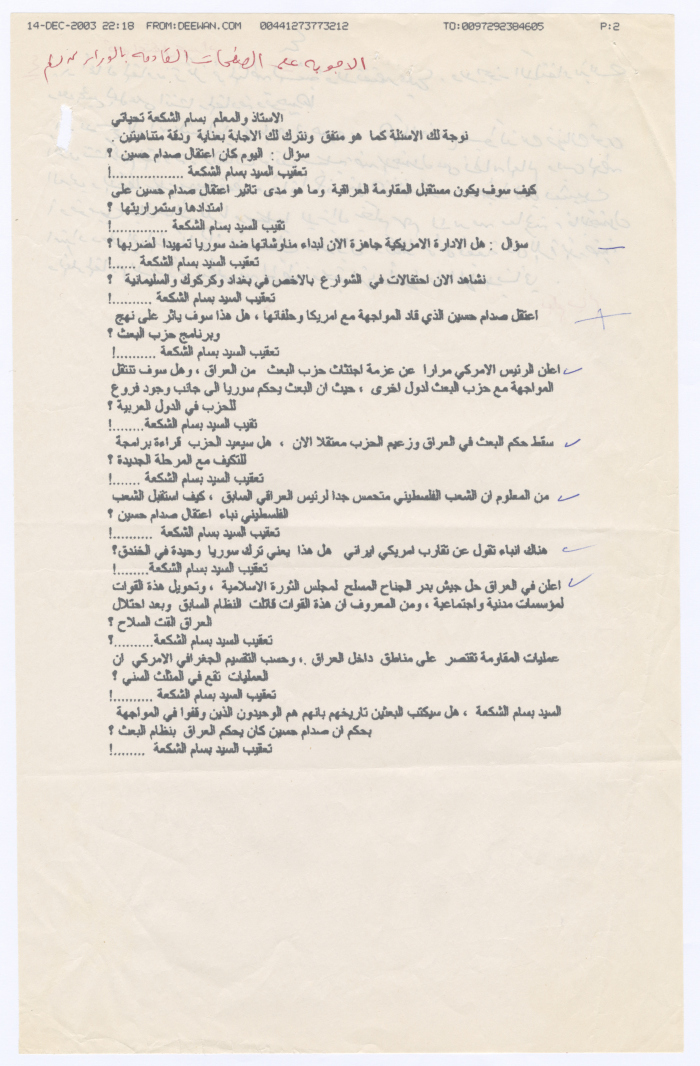 14-DEC-2003 22:18 FROM:DEEWAN.COM 00441273773212 TO:0097292384605 P:2
الاجوبه على الصفحات القادمه
الاستاذ والمعلم بسام الشكعة تحياتي
نوجة لك الاسئلة كما هو متفق ونترك لك الاجابة بعناية ودقة متناهيتين .
سؤال : اليوم كان اعتقال صدام حسين ؟
تعقيب السيد بسام الشكعة .................!
كيف سوف يكون مستقبل المقاومة العراقية وما هو مدى تاثير اعتقال صدام حسين على
امتدادها وستمراريتها ؟
تقيب السيد بسام الشكعة ..............!
سؤال : هل الادارة الامريكية جاهزة الان لبداء مناوشاتها ضد سوريا تمهيدا لضربها ؟
تعقيب السيد بسام الشكعة ......!
نشاهد الان احتفالات في الشوارع بالاخص في بغداد وكركوك والسليمانية ؟
تعقيب السيد بسام الشكعة ..........!
اعتقل صدام حسين الذي قاد المواجهة مع امريكا وحلفائها ، هل هذا سوف ياثر على نهج
وبرنامج حزب البعث ؟
تعقيب السيد بسام الشكعة ..........!
اعلن الرئيس الامركي مرارا عن عزمة اجتثاث حزب البعث من العراق ، وهل سوف تنتقل
المواجهة مع حزب البعث لدول اخرى ، حيث ان البعث يحكم سوريا الى جانب وجود فروع
للحزب في الدول العربية ؟
تقيب السيد بسام الشكعة........!
سقط حكم البعث في العراق وزعيم الحزب معتقلا الان ، هل سيعيد الحزب قراءة برامجة
للتكيف مع المرحلة الجديدة ؟
تعقيب السيد بسام الشكعة .......!
من المعلوم ان الشعب الفلسطيني متحمس جدا لرئيس العراقي السابق ، كيف استقبل الشعب
الفلسطيني نباء اعتقال صدام حسين ؟
تعقيب السيد بسام الشكعة ..........!
هناك انباء تقول عن تقارب امريكي ايراني هل هذا يعني ترك سوريا وحيدة في الخندق؟
تعقيب السيد بسام الشكعة.........!
اعلن في العراق حل جيش بدر الجناح المسلح لمجلس الثورة الاسلامية ، وتحويل هذة القوات
لمؤسسات مدنية واجتماعية ، ومن المعروف ان هذة القوات قاتلت النظام السابق وبعد احتلال
العراق القت السلاح ؟
تعقيب السيد بسام الشكعة..........؟
عمليات المقاومة تقتصر على مناطق داخل العراق .، وحسب التقسيم الجغرافي الامركي ان
العمليات تقع في المثلث السني ؟
تعقيب السيد بسام الشكعة ..........!
السيد بسام الشكعة ، هل سيكتب البعثين تاريخهم بانهم هم الوحيدون الذين وقفوا في المواجهة
بحكم ان صدام حسين كان يحكم العراق بنظام البعث ؟
تعقيب السيد بسام الشكعة ........!